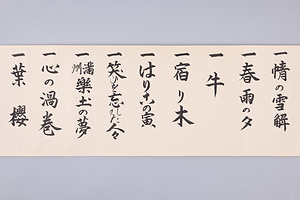 一情の雪解
一春雨の夕
一牛
一宿り木
一はりこの寅
一笑ひを忘れした人々
一満州楽土の夢
一心の渦巻
一葉櫻